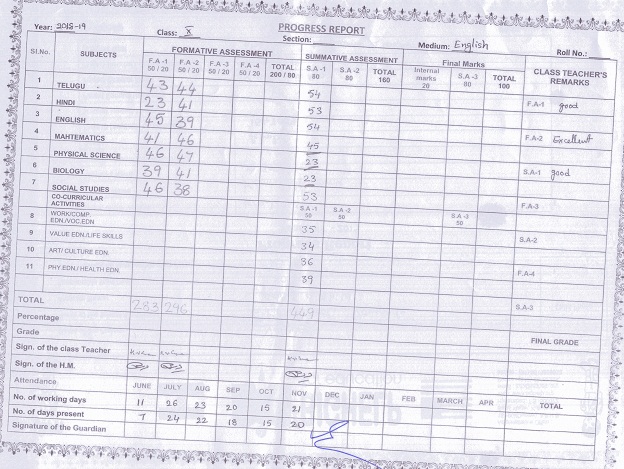 PROGRESS REPORT
Year: 2018-19 Class: X Section: Medium: English Roll No.:
Sl.No. SUBJECTS FORMATIVE ASSESSMENT SUMMATIVE ASSESSMENT Final Marks CLASS TEACHER'S REMARKS
F.A -1 50 / 20 F.A -2 50 / 20 F.A -3 50 / 20 F.A -4 50 / 20 TOTAL 200 / 80 S.A -1 80 S.A -2 80 TOTAL 160 Internal marks 20 S.A -3 80 TOTAL 100
1 TELUGU 43 44 54 F.A-1 good
2 HINDI 23 41 53
3 ENGLISH 45 39 54 F.A-2 Excellent
4 MAHTEMATICS 41 46 45
5 PHYSICAL SCIENCE 46 47 23 S.A-1 good
6 BIOLOGY 39 41 23
7 SOCIAL STUDIES 46 38 53 F.A-3
CO-CURRICULAR ACTIVITIES S.A -1 50 S.A -2 50 S.A -3 50
8 WORK/COMP. EDN./VOC.EDN 35 S.A-2
9 VALUE EDN./LIFE SKILLS 34
10 ART/ CULTURE EDN. 36 F.A-4
11 PHY.EDN./ HEALTH EDN. 39
TOTAL 283 296 449 S.A-3
Percentage
Grade FINAL GRADE
Sign. of the class Teacher
Sign. of the H.M.
Attendance JUNE JULY AUG SEP OCT NOV DEC JAN FEB MARCH APR TOTAL
No. of working days 11 26 23 20 15 21
No. of days present 7 24 22 18 15 20
Signature of the Guardian